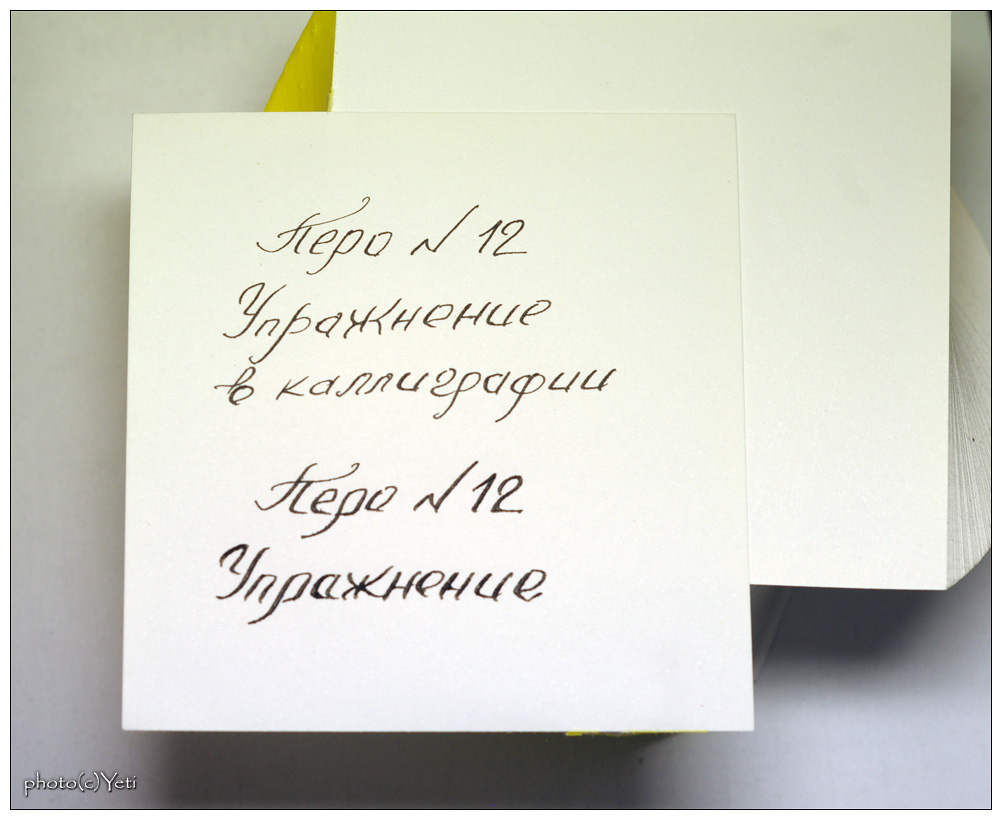 Перо N 12
Упражнение
в каллиграфии
Перо N 12
Упражнение
photo(c)Yeti